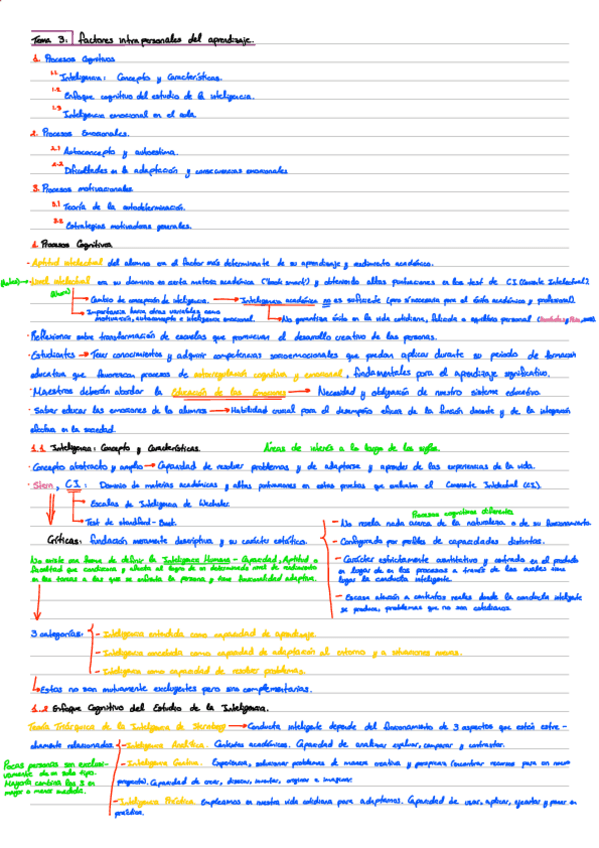 Tema 3: Factores intrapersonales del aprendizaje.
1. Procesos Cognitivos
1.1 Inteligencia: Concepto y Características.
1.2 Enfoque cognitivo del estudio de la inteligencia.
1.3 Inteligencia emocional en el aula.
2. Procesos Emocionales.
2.1 Autoconcepto y autoestima.
2.2 Dificultades en la adaptación y consecuencias emocionales
3. Procesos motivacionales
3.1 Teoría de la autodeterminación.
3.2 Estrategias motivadoras generales.
1. Procesos Cognitivos
· Aptitud intelectual del alumno era el factor más determinante de su aprendizaje y rendimiento académico.
(Antes) → Nivel intelectual era su dominio en cierta materia académica ("book smart") y obteniendo altas puntuaciones en los test de CI (Cociente Intelectual).
(Ahora) → Cambio de concepción de inteligencia. → Inteligencia académica no es suficiente (pero sí necesaria para el éxito académico y profesional).
→ Importancia hacia otras variables como
motivación, autoconcepto e inteligencia emocional. → No garantiza éxito en la vida cotidiana, felicidad o equilibrio personal
· Reflexionar sobre transformación de escuelas que promuevan el desarrollo creativo de las personas.
· Estudiantes → Tener conocimientos y adquirir competencias socioemocionales que puedan aplicar durante su periodo de formación
educativa que favorezcan procesos de autorregulación cognitiva y emocional, fundamentales para el aprendizaje significativo.
· Maestros deberán abordar la educación de las emociones → Necesidad y obligación de nuestro sistema educativo.
· Saber educar las emociones de los alumnos → Habilidad crucial para el desempeño eficaz de la función docente y de la integración
efectiva en la sociedad.
1.1 Inteligencia: Concepto y Características. Áreas de interés a lo largo de los siglos.
· Concepto abstracto y amplio → Capacidad de resolver problemas y de adaptarse y aprender de las experiencias de la vida.
· Stern, CI: Dominio de materias académicas y altas puntuaciones en estas pruebas que evalúan el Cociente Intelectual (CI).
→ Escalas de Inteligencia de Wechsler.
→ Test de Standford-Binet.
Procesos cognitivos diferentes
Críticas: fundación meramente descriptiva y su carácter estático.
- No revela nada acerca de la naturaleza o de su funcionamiento.
- Configurada por perfiles de capacidades distintas.
- Carácter estrictamente cuantitativo y centrado en el producto
en lugar de en los procesos a través de los cuales tiene
lugar la conducta inteligente.
- Escasa atención a contextos reales donde la conducta inteligente
se produce, problemas que no son cotidianos.
No existe una forma de definir la Inteligencia Humana - Capacidad, Aptitud o
facultad que condiciona y afecta al logro de un determinado nivel de rendimiento
en las tareas a las que se enfrenta la persona y tiene funcionalidad adaptativa.
3 categorías:
- Inteligencia entendida como capacidad de aprendizaje.
- Inteligencia concebida como capacidad de adaptación al entorno y a situaciones nuevas.
- Inteligencia como capacidad de resolver problemas.
→ Estas no son mutuamente excluyentes pero son complementarias.
1.2 Enfoque Cognitivo del Estudio de la Inteligencia.
Teoría Triárquica de la Inteligencia de Sternberg → Conducta inteligente depende del funcionamiento de 3 aspectos que están estre-
chamente relacionados
- Inteligencia Analítica. Contextos académicos. Capacidad de analizar, evaluar, comparar y contrastar.
- Inteligencia Creativa. Experiencia, solucionar problemas de manera creativa y
proyecto). Capacidad de crear, diseñar, inventar, originar e imaginar.
- Inteligencia Práctica. Empleamos en nuestra vida cotidiana para adaptarnos. Capacidad de usar, aplicar, ejecutar y poner en
práctica.
Pocas personas son exclusi-
vamente de un solo tipo.
Mayoría combina los 3 en
mayor o menor medida.